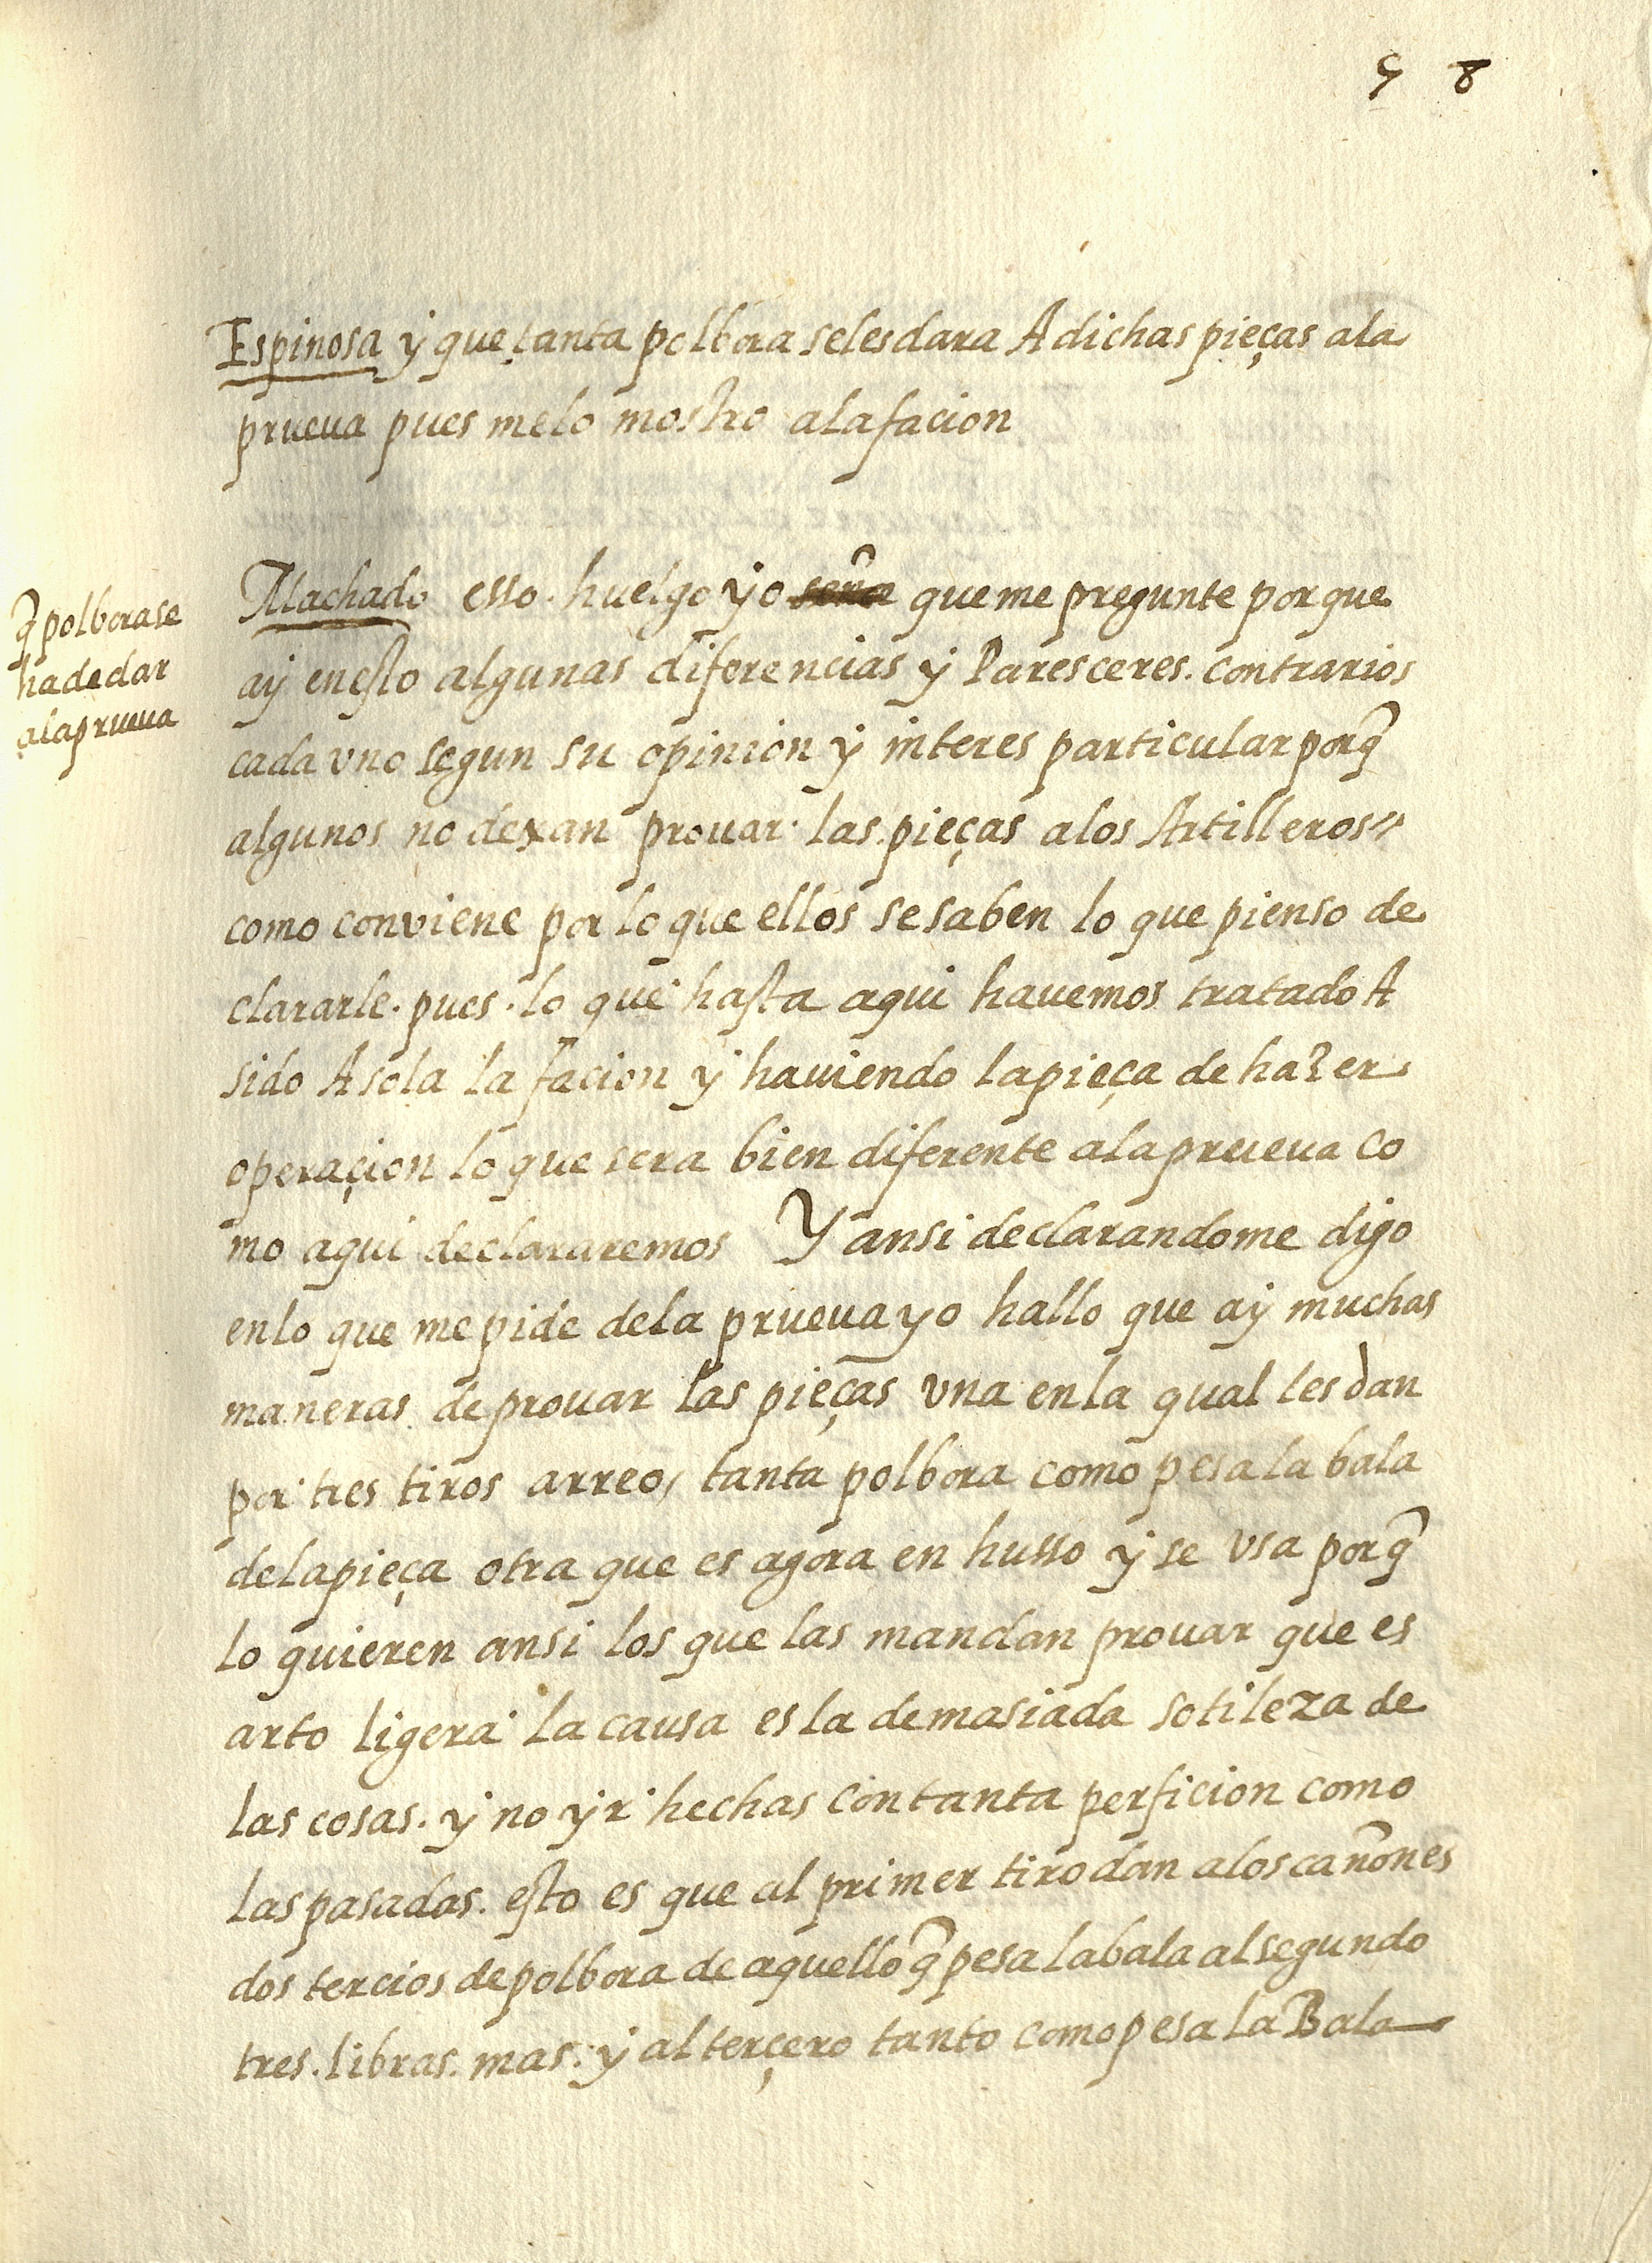 58
Espinosa y que tanta polbora selesdara A dichas pieças ala
prueua pues melo mostro alafacion
q̃ polborase
hadedar
alaprueua
Machado esso. huelgo yo señor que me pregunte por que
ay enesto algunas diferencias y Paresceres. contrarios
cada vno segun su opinion y interes particular porq̃
algunos no dexan prouar. las pieças alos Artilleros
como conviene por lo que ellos sesaben lo que pienso de
clararle. pues. lo que hasta aqui hauemos tratado A
sido A sola la facion y hauiendo lapieça de hazer
operaçion lo que sera bien diferente alaprueua co
mo aqui declararemos Y ansi declarandome digo
enlo que me pide dela prueua yo hallo que ay muchas
maneras de prouar las pieças vna enla qual les dan
por tres tiros arreo, tanta polbora como pesa la bala
delapieça otra que es agora en husso y se vsa porq̃
lo quieren ansi los que las mandan prouar que es
arto ligera la causa es la demasiada sotileza de
las cosas. y no yr hechas con tanta perficion como
las pasadas. esto es que al primer tiro dan alos cañones
dos tercios de polbora de aquello q̃ pesa labala al segundo
tres. libras. mas. y al terçero tanto como pesa la Bala